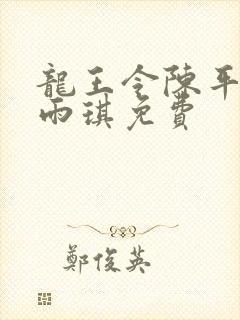 龍王令陳平
雨琪免費
鄭俊英